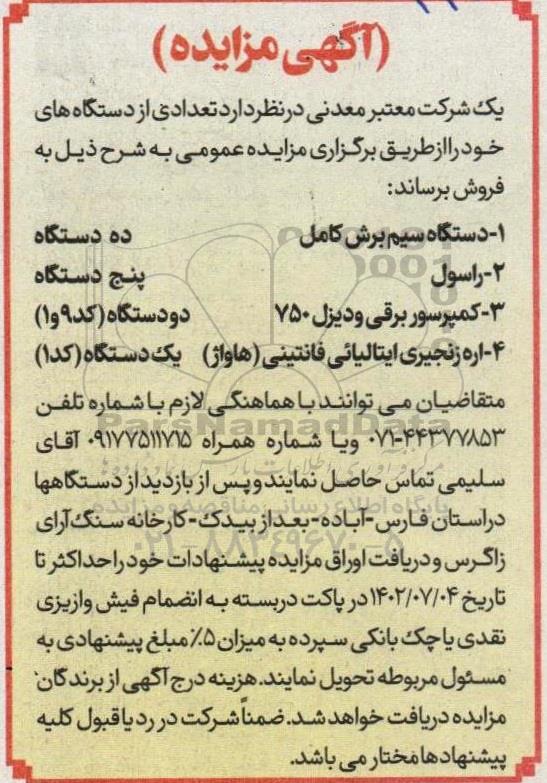 (آگهی مزایده)
یک شرکت معتبر معدنی در نظر دارد تعدادی از دستگاه های
خود را از طریق برگزاری مزایده عمومی به شرح ذیل به
فروش برساند:
۱-دستگاه سیم برش کامل ده دستگاه
۲-راسول پنج دستگاه
۳-کمپرسور برقی و دیزل ۷۵۰ دو دستگاه (کد۹و۱)
۴-اره زنجیری ایتالیائی فانتینی (هاواژ) یک دستگاه (کد۱)
متقاضیان می توانند با هماهنگی لازم با شماره تلفن
۰۷۱-۴۴۳۷۷۸۵۳ ویا شماره همراه ۰۹۱۷۷۵۱۱۷۱۵ آقای
سلیمی تماس حاصل نمایند و پس از بازدید از دستگاهها
در استان فارس-آباده-بعد از بیدک-کارخانه سنگ آرای
زاگرس و دریافت اوراق مزایده پیشنهادات خود را حداکثر تا
تاریخ ۱۴۰۲/۰۷/۰۴ در پاکت دربسته به انضمام فیش واریزی
نقدی یا چک بانکی سپرده به میزان ۵٪ مبلغ پیشنهادی به
مسئول مربوطه تحویل نمایند. هزینه درج آگهی از برندگان
مزایده دریافت خواهد شد. ضمناً شرکت در رد یا قبول کلیه
پیشنهادها مختار می باشد.
ParsNamadData
پایگاه اطلاع رسانی مناقصه و مزایده
۰۲۱-۸۸۳۴۹۶۷۰-۵